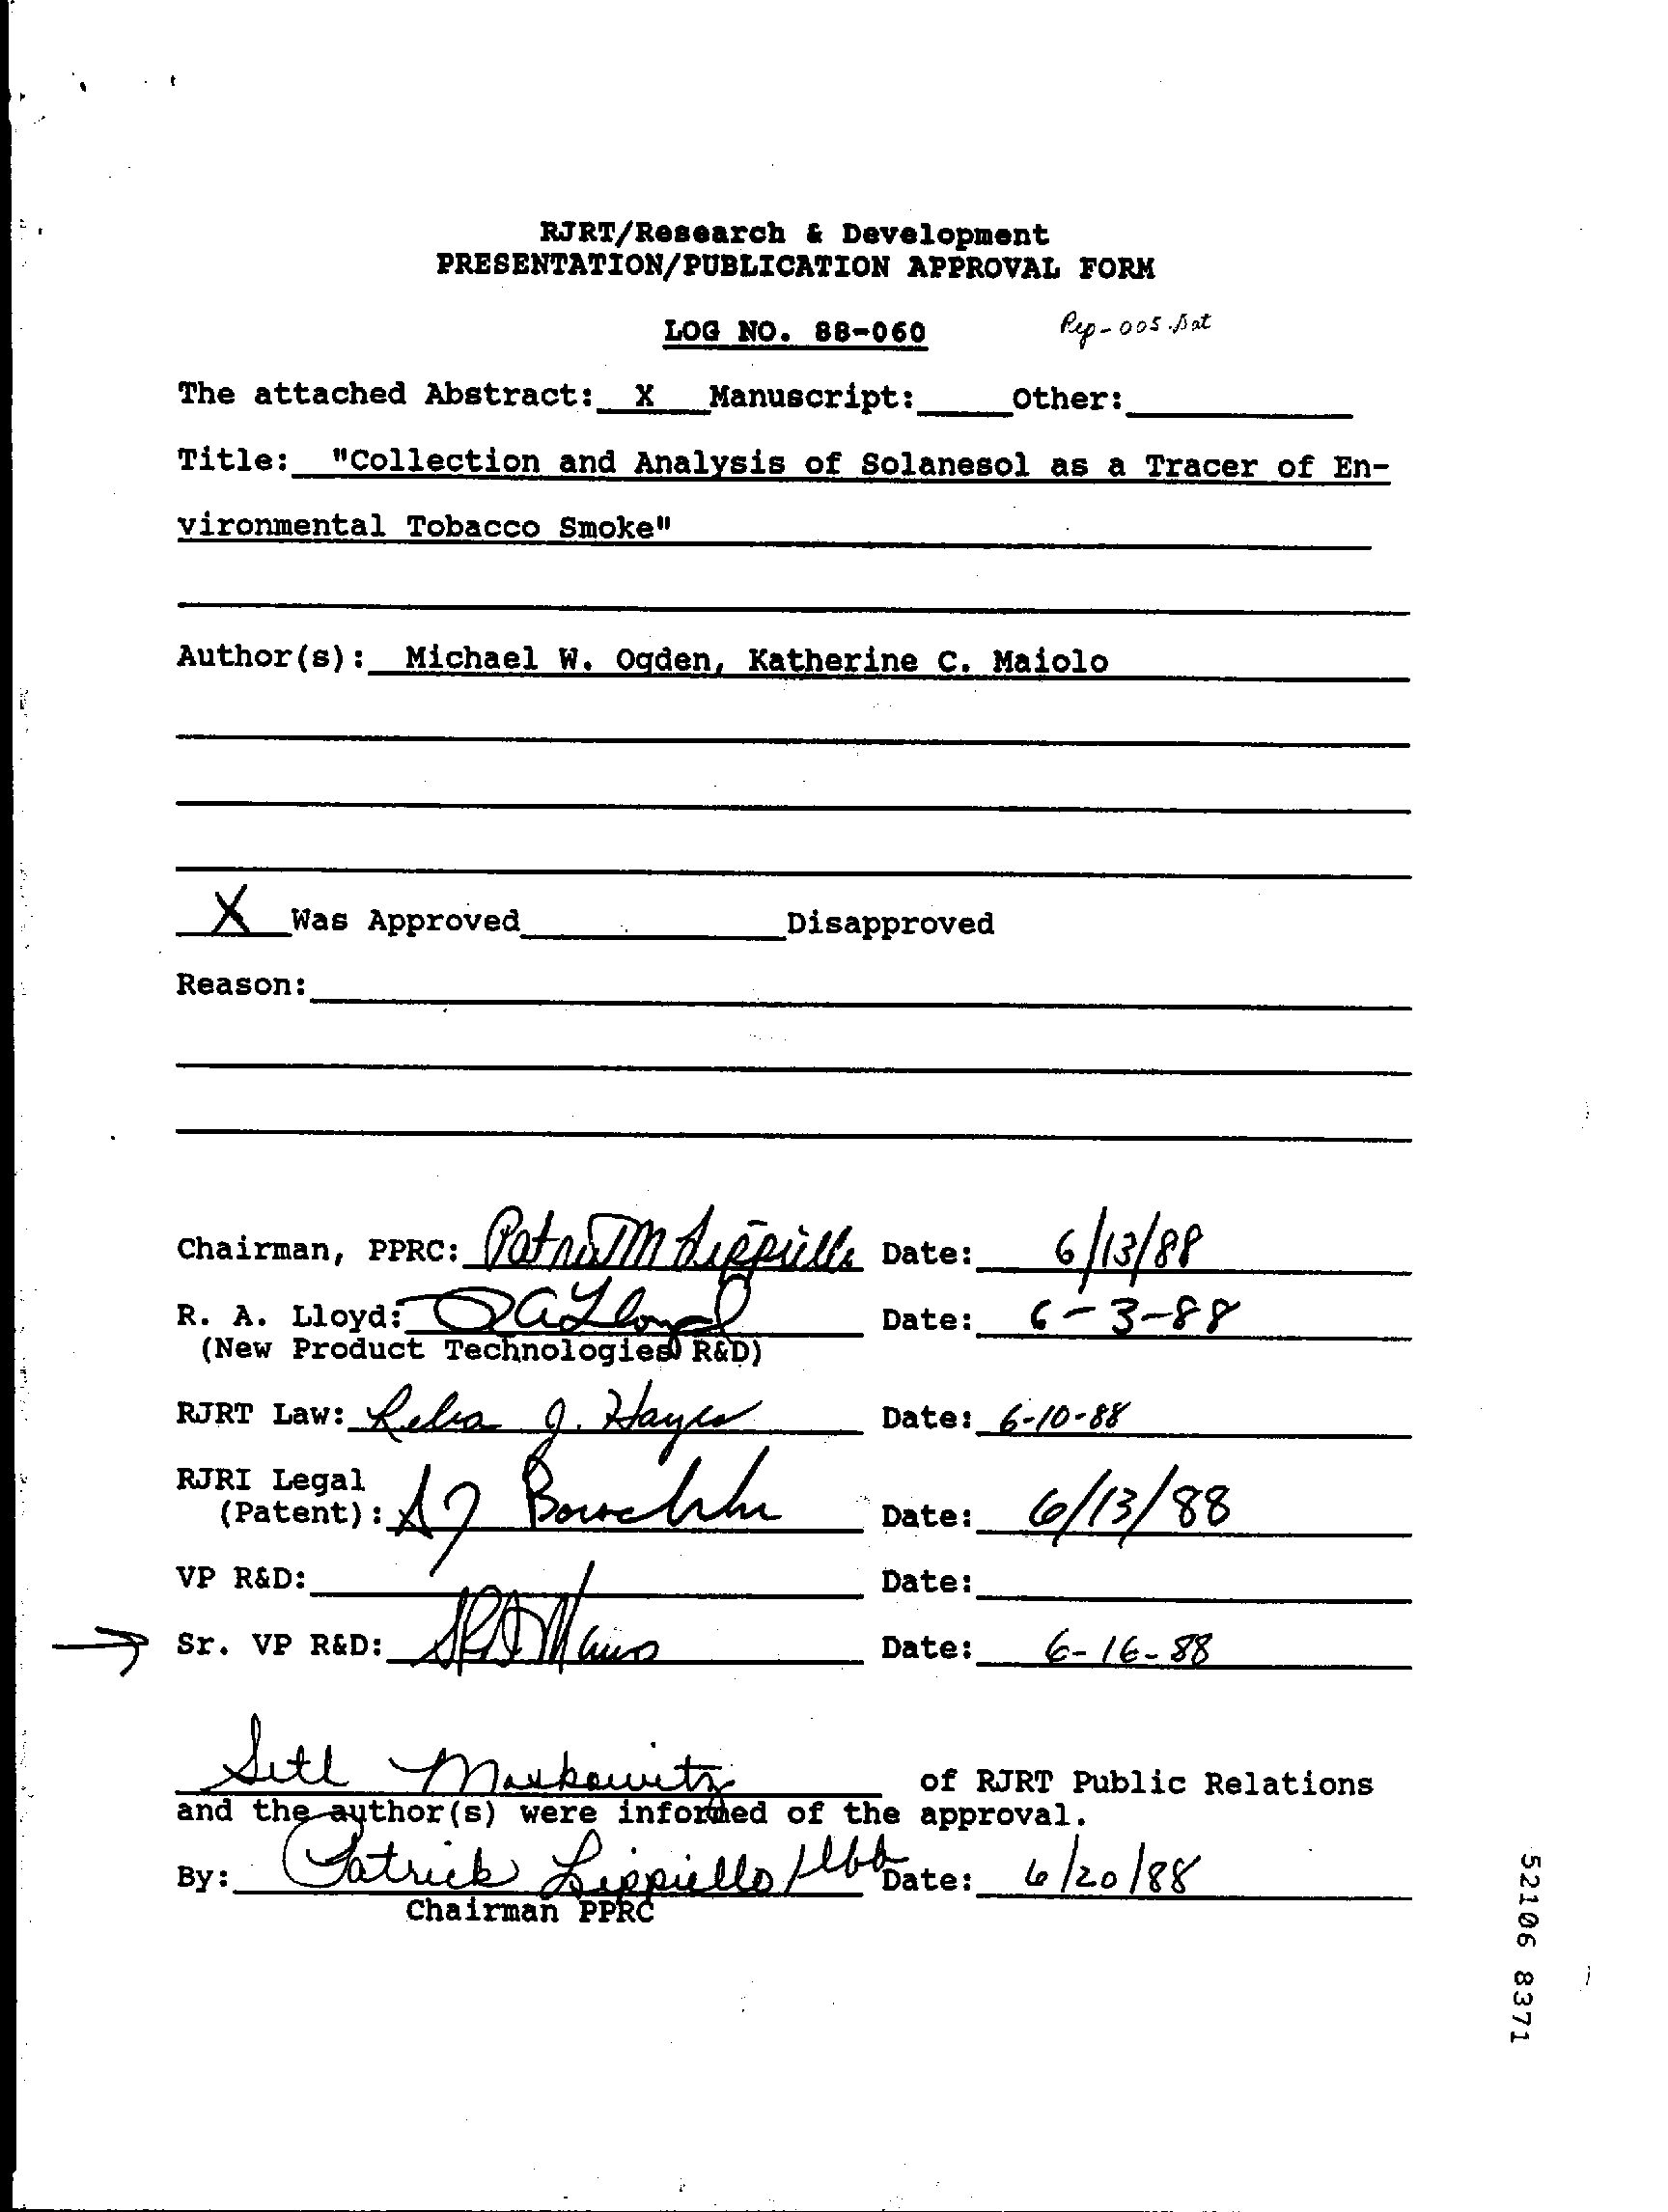 RJRT/Research & Development
PRESENTATION/PUBLICATION APPROVAL FORM
LOG NO. 88-060
Rep-005.Dat
The attached Abstract: X Manuscript: Other:
Title: "Collection and Analysis of Solanesol as a Tracer of En-
vironmental Tobacco Smoke"
Author(s): Michael W. Ogden, Katherine C. Maiolo
X Was Approved Disapproved
Reason:
Chairman, PPRC: Patrick M Lippiello Date: 6/13/88
R. A. Lloyd: RA Lloyd Date: 6-3-88
(New Product Technologies R&D)
RJRT Law: J. Hayes Date: 6-10-88
RJRI Legal
(Patent): Date: 6/13/88
VP R&D: Date:
Sr. VP R&D: Date: 6-16-88
Seth Moskowitz of RJRT Public Relations
and the author(s) were informed of the approval.
By: Patrick Lippiello Date: 6/20/88
Chairman PPRC
52106 8371